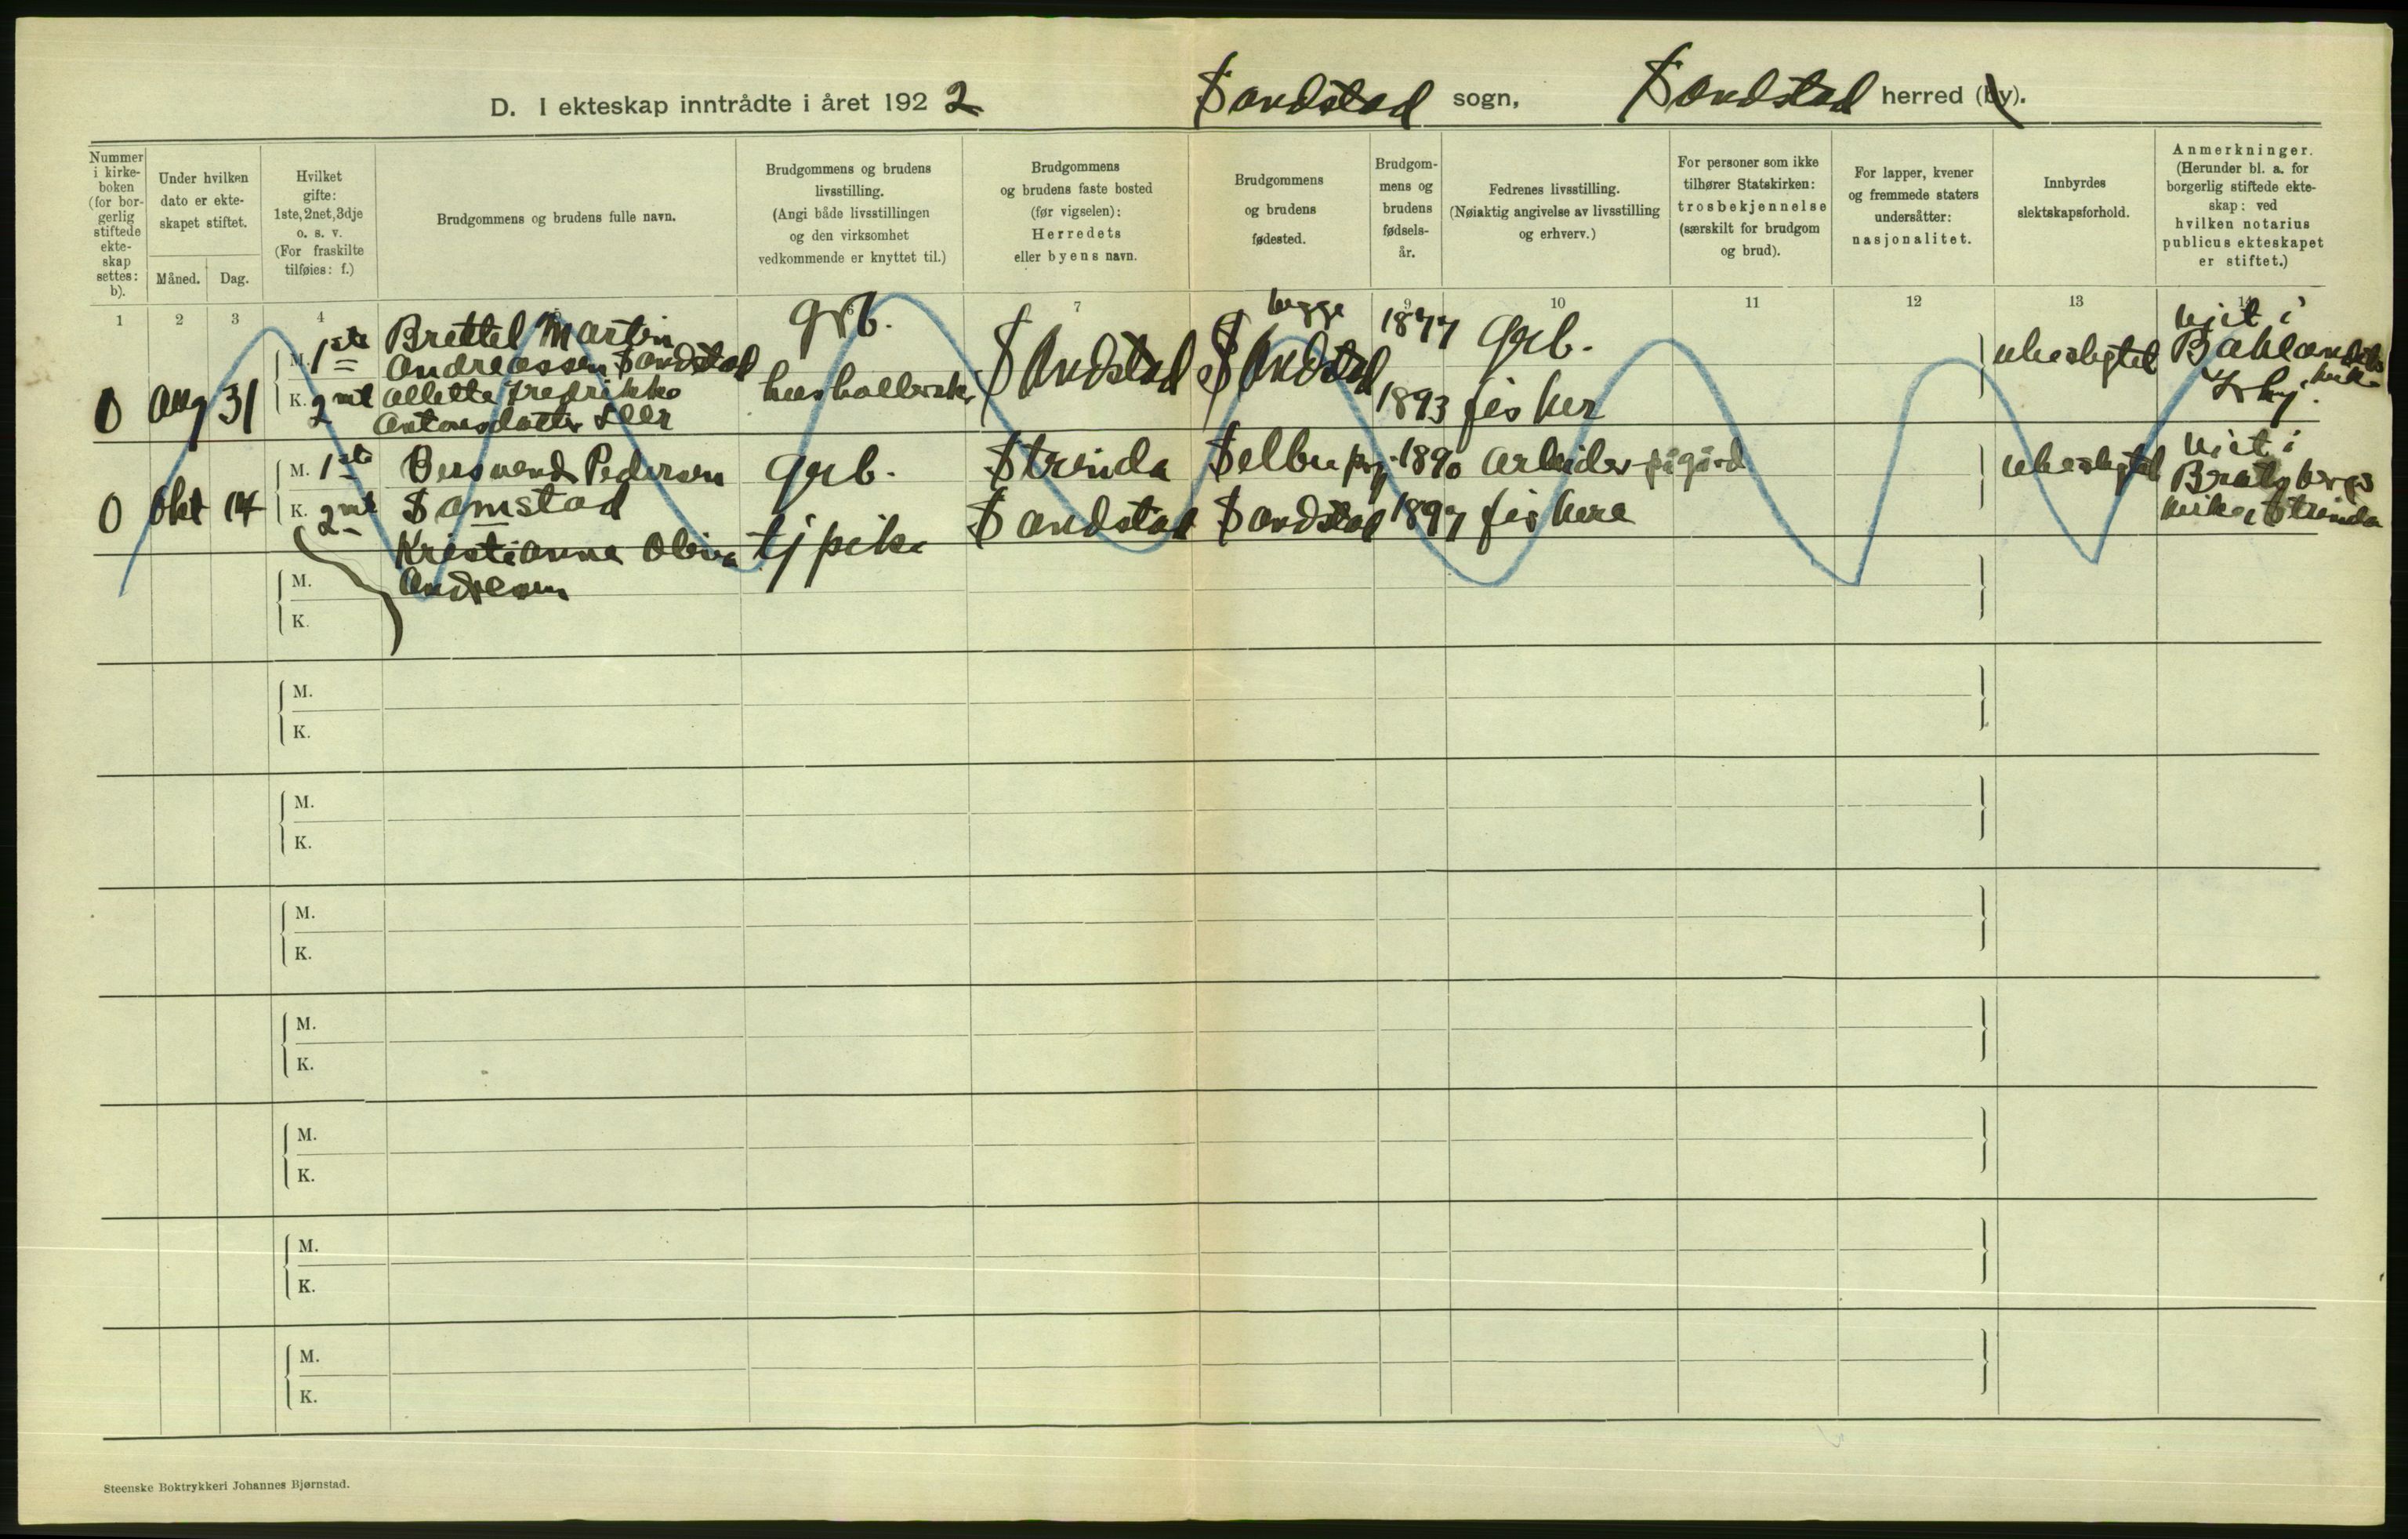 D. I ekteskap inntrådte i året 1922 Sandstad sogn, Sandstad herred (by).
Nummer i kirke-boken (for bor-gerlig stiftede ekte-skap settes: b).
Under hvilken dato er ekte-skapet stiftet.
Måned. Dag.
Hvilket gifte: 1ste, 2net, 3dje o. s. v. (For fraskilte tilføies: f.)
Brudgommens og brudens fulle navn.
Brudgommens og brudens livsstilling. (Angi både livsstillingen og den virksomhet vedkommende er knyttet til.)
Brudgommens og brudens faste bosted (før vigselen): Herredets eller byens navn.
Brudgommens og brudens fødested.
Brudgom-mens og brudens fødsels-år.
Fedrenes livsstilling. (Nøiaktig angivelse av livsstilling og erhverv.)
For personer som ikke tilhører Statskirken: trosbekjennelse (særskilt for brudgom og brud).
For lapper, kvener og fremmede staters undersåtter: nasjonalitet.
Innbyrdes slektskapsforhold.
Anmerkninger. (Herunder bl. a. for borgerlig stiftede ekte-skap: ved hvilken notarius publicus ekteskapet er stiftet.)
1 2 3 4 5 6 7 8 9 10 11 12 13 14
0 Aug 31
M. 1ste Martin
Andreassen Sandstad
grb. Sandstad begge Sandstad 1877 grb.
K. 2net Allette Fredrikke
Antonsdatter
1893 fisker
ubeslegtet
viet i
0 Okt 14
M. 1ste Bersvend Pedersen
Samstad
grb. Strinda Selbu prgj. 1890 Arbeider på gård
K. 2net
Kristianna
Andresen
tj pike Sandstad Sandstad 1897 fisker
ubeslegtet
viet i
Bratsbergs
kirke, Strinda
M.
K.
M.
K.
M.
K.
M.
K.
M.
K.
M.
K.
M.
K.
M.
K.
Steenske Boktrykkeri Johannes Bjørnstad.